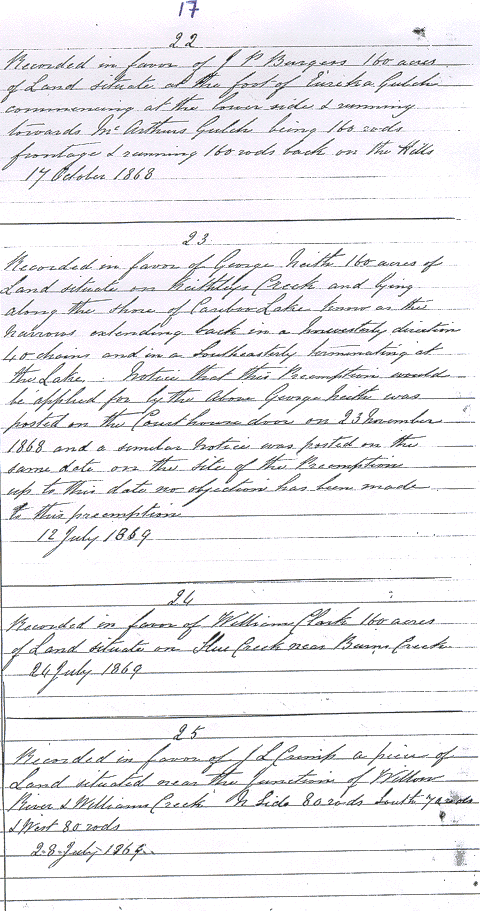 17
22
Recorded in favor of J P Burgess 160 acres
of Land situate at the foot of Eureka Gulch
commencing at the lower side & running
towards McArthurs Gulch being 160 rods
frontage & running 160 rods back on the Hills
17 October 1868
23
Recorded in favor of George Keith 160 acres of
Land situate on Keithleys Creek and lying
along the shore of Cariboo Lake know as the
Narrows extending back in a direction
40 chains and in a Southeasterly terminating at
the Lake. Notice that this Preemption would
be applied for by the above George Keith was
posted on the Courthouse door on 23 November
1868 and a similar notice was posted on the
same date on the site of the Preemption
up to this date no objection has been made
to this preemption
12 July 1869
24
Recorded in favor of William Clark 160 acres
of Land situate on Creek near Burns Creek
24 July 1869
25
Recorded in favor of J L Crimp a piece of
Land situated near the Junction of Willow
River & Williams Creek N Side 80 rods South rods
& West 80 rods
28 July 1869